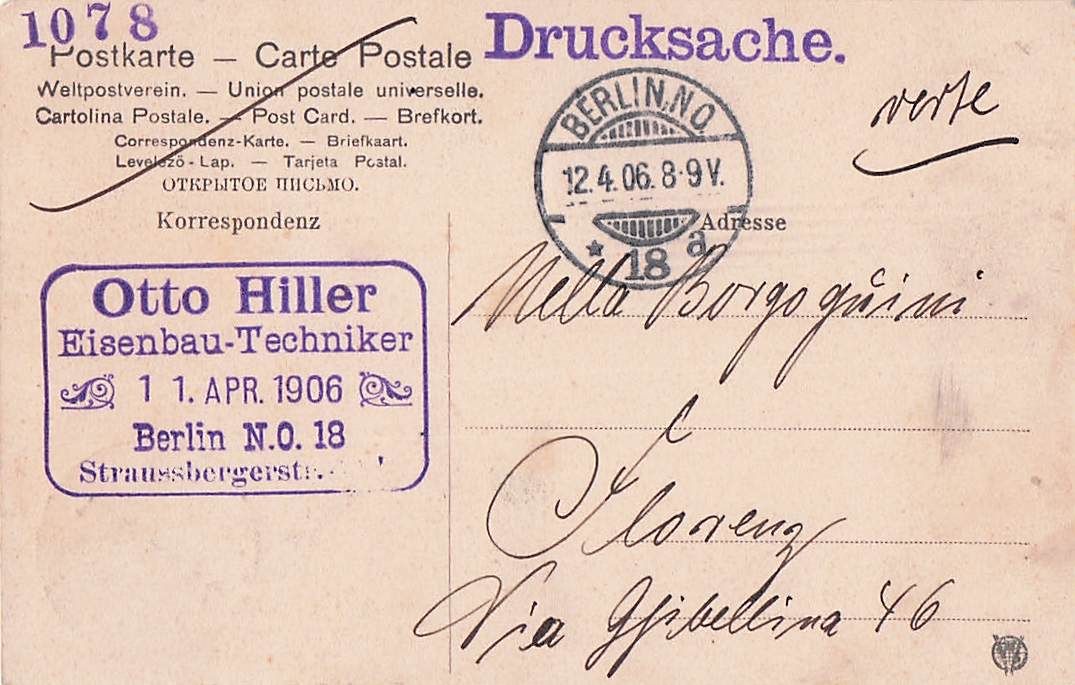 1078
Drucksache.
Postkarte — Carte Postale
Weltpostverein. — Union postale universelle.
Cartolina Postale. — Post Card. — Brefkort.
Correspondenz-Karte. — Briefkaart.
Levelező-Lap. — Tarjeta Postal.
ОТКРЫТОЕ ПИСЬМО.
Korrespondenz
verte
BERLIN.N.O.
12.4.06. 8-9V.
* 18 a
Adresse
Otto Hiller
Eisenbau-Techniker
11. APR. 1906
Berlin N.O. 18
Straussbergerstr.
Nella
Florenz
Via Ghibellina 46